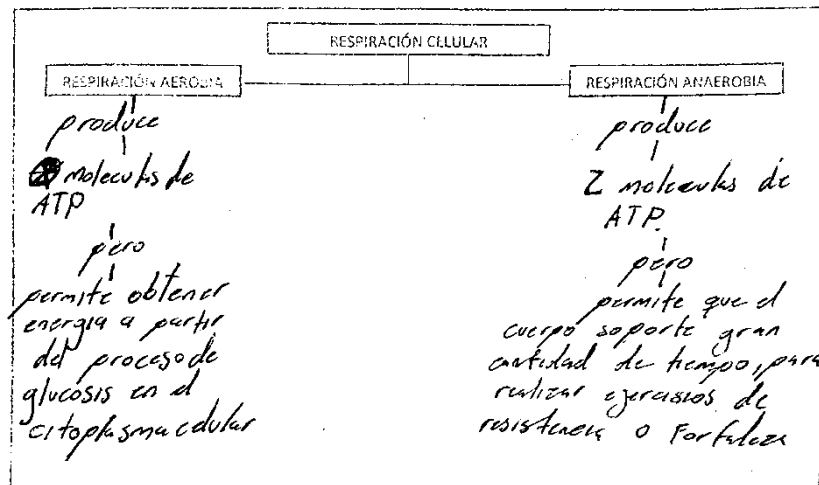 RESPIRACIÓN CELULAR
RESPIRACIÓN AEROBIA
produce
moleculas de
ATP
pero
permite obtener
energia a partir
del proceso de
glucosis en el
citoplasma celular
RESPIRACIÓN ANAEROBIA
produce
2 moleculas de
ATP.
pero
permite que el
cuerpo soporte gran
cantidad de tiempo, para
realizar ejercisios de
resistencia o Fortaleza